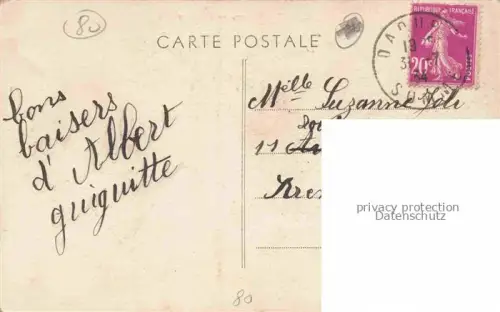 80
CARTE POSTALE
REPUBLIQUE FRANÇAISE
20c
POSTES
19
bons
baisers
d'Albert
guiguitte
Melle Suzanne
11
privacy protection
Datenschutz
80